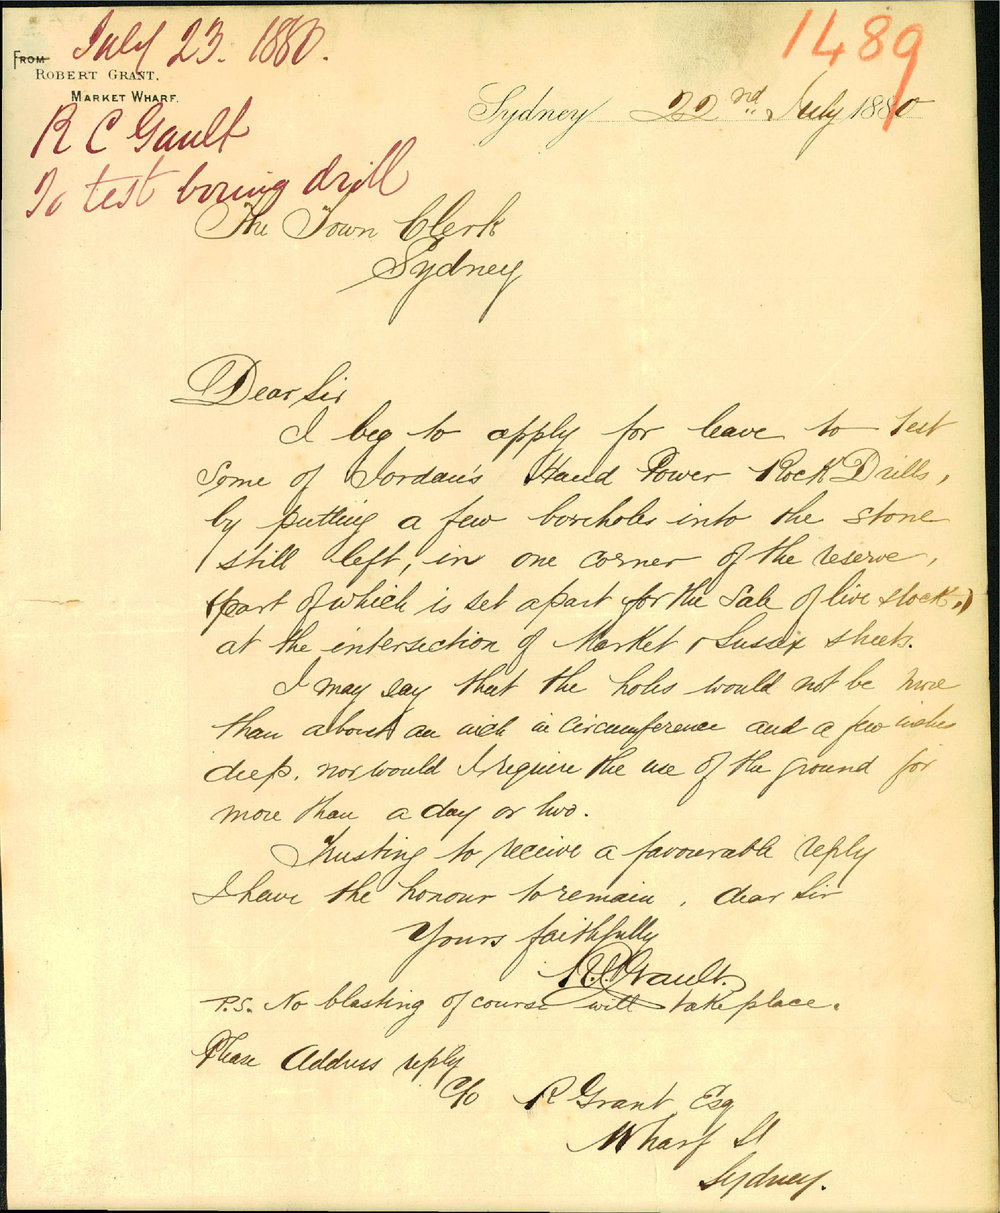 July 23. 1880.
1489
FROM
ROBERT GRANT.
MARKET WHARF.
Sydney 22nd July 1880
R C Gault
To test boring drill
The Town Clerk
Sydney
Dear Sir
I beg to apply for leave to test
some of Jordan's Hand Power Rock Drills,
by putting a few boreholes into the stone
still left, in one corner of the reserve,
(part of which is set apart for the Sale of live stock,)
at the intersection of Market & Sussex streets.
I may say that the holes would not be more
than about an inch in circumference and a few inches
deep. nor would I require the use of the ground for
more than a day or two.
Trusting to receive a favourable reply
I have the honour to remain, dear Sir
Yours faithfully
R.C. Gault.
P.S. No blasting of course will take place.
Please Address reply
C/o R Grant Esq
Wharf St
Sydney.